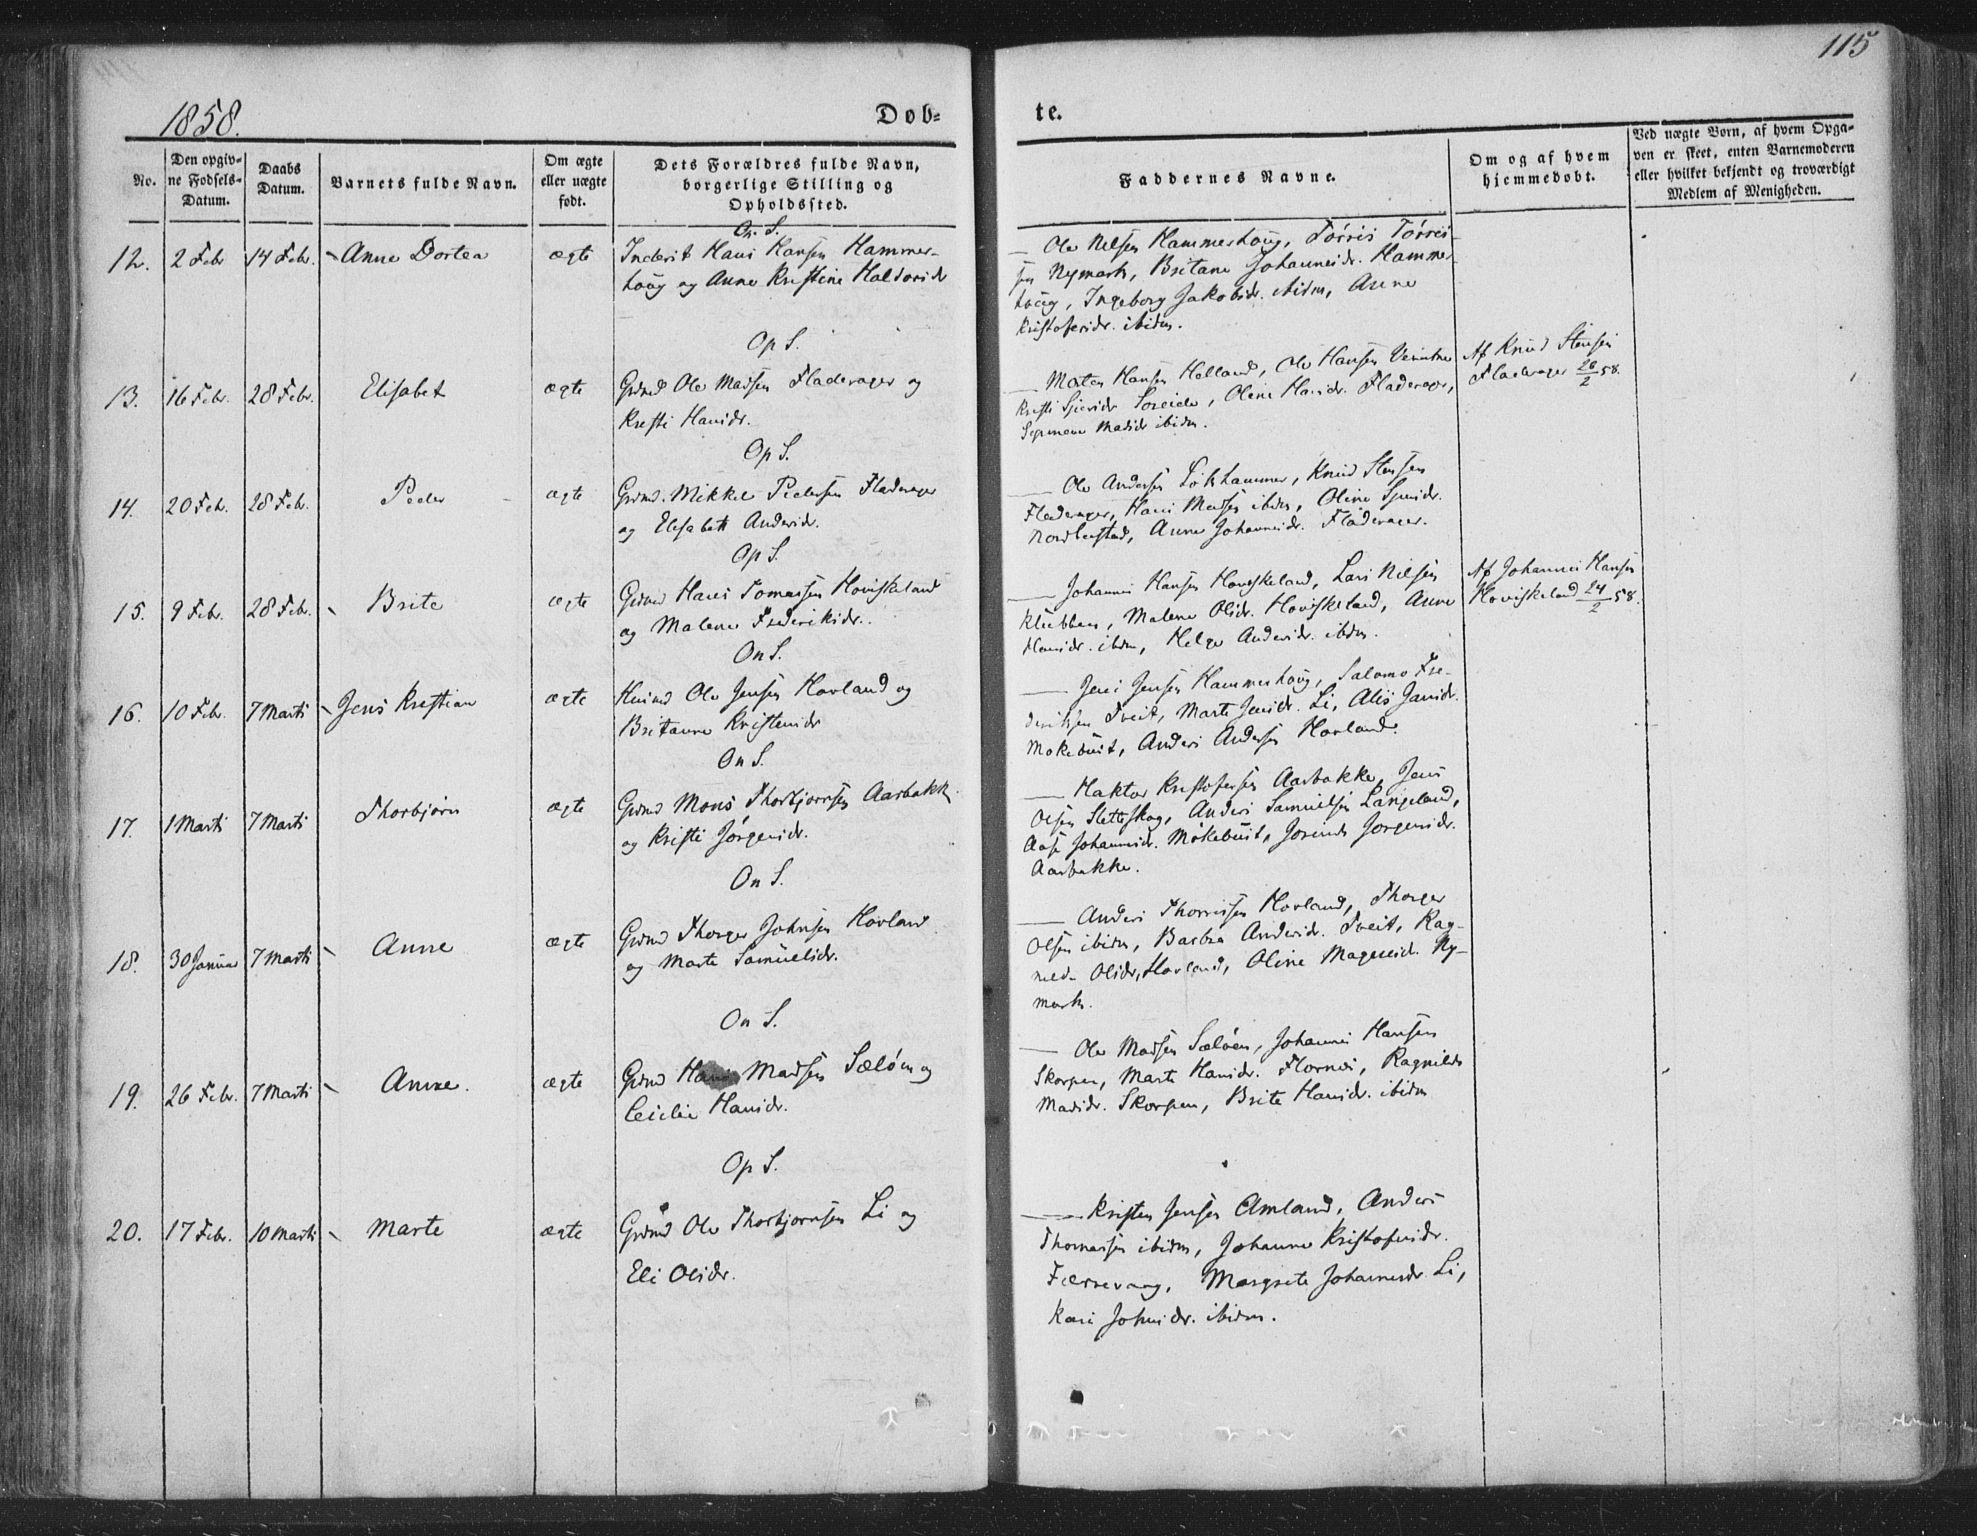 115
1858.
Døb=
te.
No.
Den opgiv=
ne Fødsels=
Datum.
Daabs
Datum.
Barnets fulde Navn.
Om ægte
eller uægte
født.
Dets Forældres fulde Navn,
borgerlige Stilling og
Opholdssted.
Faddernes Navne.
Om og af hvem
hjemmedøbt.
Ved uægte Børn, af hvem Opga=
ven er skeet, enten Barnemoderen
eller hvilket bekjendt og troværdigt
Medlem af Menigheden.
On S.
12. 2 Febr 14 Febr. Anne Dortea ægte Inderst Hans Hansen Hammers-
houg og Anne Kristine Haldorsdr
Ole Nilsen Hammershoug, Tørris Tørris-
sen Nymark, Britane Johannesdr. Hammers-
houg, Ingeborg Jakobsdr. ibidm, Anne
Kristofersdr. ibidm.
Op S.
13. 16 Febr. 28 Febr. Elisabet ægte Grdmd Ole Madsen Fladerager og
Kristi Hansdr.
Morten Hansen Helland, Ole Hansen
Kristi Soreide, Oline Hansdr. Fladerager,
Madsdr ibidm.
Af Knud Stensen
Fladerager 26/2 58.
Op S.
14. 20 Feb. 28 Feb. Peder ægte Grdmd. Mikkel Pedersen Fladerager
og Elisabeth Andersdr.
Ole Andersen Løkhammer, Knud Stensen
Fladerager, Hans Madsen ibidm, Oline
Anne Johannesdr. Fladerager.
Op S.
15. 9 Febr. 28 Febr. Brite ægte Grdmd Hans Tomassen Hoviskeland
og Malene Frederiksdr.
Johannes Hansen Hoviskeland, Lars Nilsen
Klubben, Malene Olsdr. Hoviskeland, Anne
Hansdr. ibdm, Helge Andersdr. ibdm.
Af Johannes Hansen
Hoviskeland 24/2 58.
On S.
16. 10 Febr. 7 Marts Jens Kristian ægte Husmd Ole Jensen Hovland og
Britanne Kristensdr
Jens Jensen Hammershoug, Salomo Fre-
driksen Tveit, Marte Jensdr. Li, Alis Jansdr.
Mokebust, Anders Andersen Hovland.
On S.
17. 1 Marts 7 Marts Thorbjørn ægte Grdmd Mons Thorbjørnsen Aarbakk.
og Kristi Jørgensdr.
Haktor Kristofersen Aarbakke, Jens
Olsen Sletteskog, Anders Samuelsen Langeland,
Aase Johannesdr. Mokebust, Jorgensdr.
Aarbakke.
On S.
18. 30 Januar 7 Marts Anne ægte Grdmd Thorger Johnsen Hovland.
og Marte Samuelsdr.
Anders Thorrissen Hovland, Thorger
Olsen ibidm, Barbra Andersdr. Tveit, Rag-
ned Olsdr, Hovland, Oline Magnesdr. Ny-
mark.
On S.
19. 26 Febr. 7 Marts Anne. ægte Grdmd Hans Madsen Sæløen og
Ceicilie Hansdr.
Ole Madsen Sæløen, Johannes Hansen
Skorpen, Marte Hansdr. Flornes, Ragnilde
Madsdr. Skorpen, Brite Hansdr. ibidm
Op S.
20. 17 Febr. 10 Marts Marte ægte Grdmd Ole Thorbjørnsen Li og
Eli Olsdr.
Kristen Jensen Amland, Anders
Thomassen ibidm, Johanne Kristofersdr.
Færrevaag, Margrete Johannesdr Li,
Kari Johnsdr. ibidm.